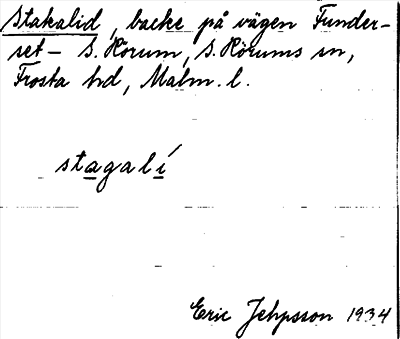 Stakalid, backe på vägen Funder-
set – S. Rörum, S. Rörums sn,
Frosta hd, Malm. l.
stagalí
Eric Jehpsson 1934